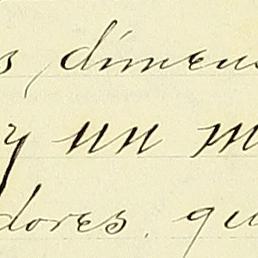 s, dimens
y un m
dores. qu